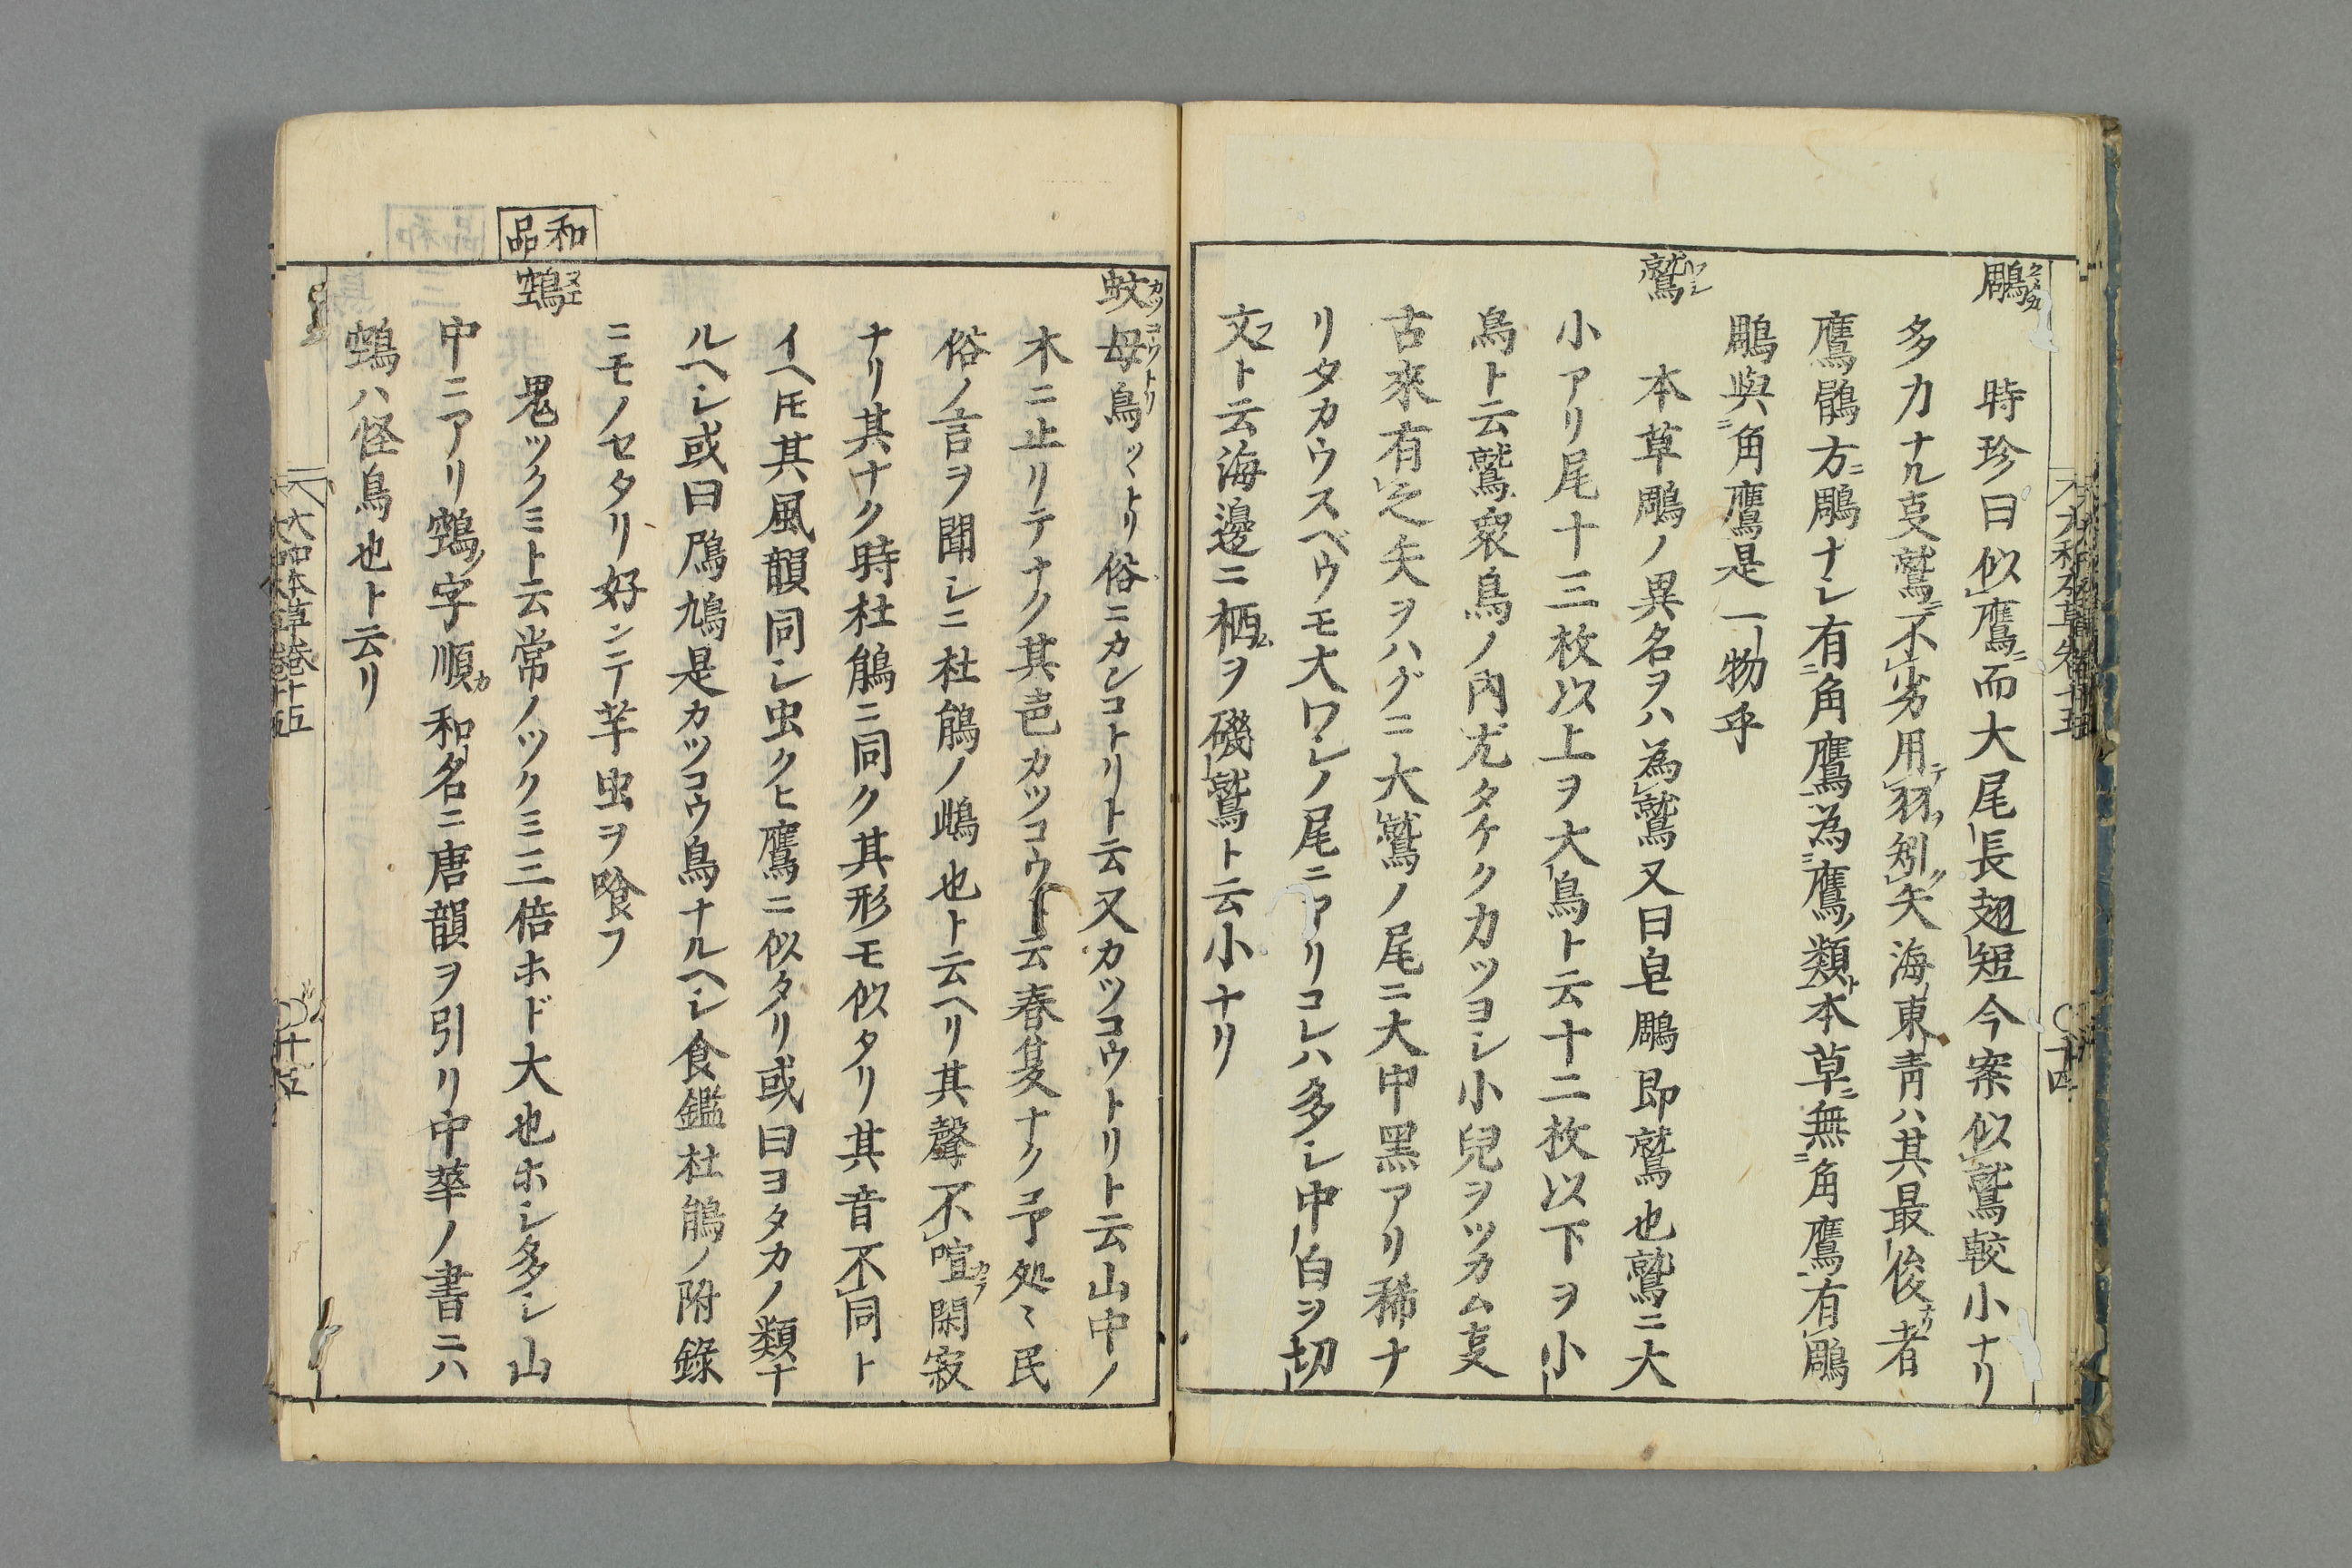 鵰
時珍曰似鷹而大尾長翅短今案似鷲較小ナリ
多力ナル叓鷲ニ不劣用羽矧矢海東青ハ其最俊者
鷹鶻方ニ鵰ナシ有角鷹為鷹類本草ニ無角鷹有鵰
鵰與角鷹是一物乎
鷲
本草鵰ノ異名ヲハ為鷲又曰皂鵰即鷲也鷲ニ大
小アリ尾十三枚以上ヲ大鳥ト云十二枚以下ヲ小
鳥ト云鷲衆鳥ノ内尤タケクカツヨシ小兒ヲツカム叓
古來有之矢ヲハグニ大鷲ノ尾ニ大中黑アリ稀ナ
リタカウスベウモ大ワシノ尾ニアリコレハ多シ中白ヲ切
文ト云海邊ニ栖ヲ磯鷲ト云小ナリ
蚊母鳥 俗ニカシコトリト云又カツコウトリト云山中ノ
木ニ止リテナク其邑カツコウト云春夏ナク予処々民
俗ノ言ヲ聞シニ杜鵑ノ鴫也ト云ヘリ其聲不喧閑寂
ナリ其ナク時杜鵑ニ同ク其形モ似タリ其音不同ト
イヘ𪜈其風韻同シ虫クヒ鷹ニ似タリ或曰ヨタカノ類ナ
ルヘシ或曰鳲鳩是カツコウ鳥ナルヘシ食鑑杜鵑ノ附錄
ニモノセタリ好ンテ芋虫ヲ喰フ
和品
鵼
鬼ツクミト云常ノツクミ三倍ホド大也ホシ多シ山
中ニアリ鵼字順和名ニ唐韻ヲ引リ中華ノ書ニハ
鵼ハ怪鳥也ト云リ
大和本草卷十五
十五